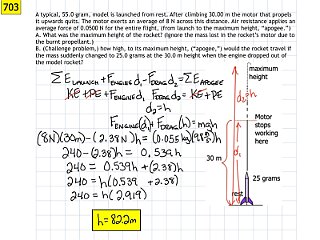 703
A typical, 55.0 gram, model is launched from rest. After climbing 30.00 m the motor that propels
it upwards quits. The motor exerts an average of 8 N across this distance. Air resistance applies an
average force of 0.0500 N for the entire flight, (from launch to the maximum height, "apogee.")
A. What was the maximum height of the rocket? (Ignore the mass lost in the rocket's motor due to
the burnt propellant.)
B. (Challenge problem.) how high, to its maximum height, ("apogee,") would the rocket travel if
the mass suddenly changed to 25.0 grams at the 30.0 m height when the engine dropped out
of the model rocket?
ΣE LAUNCH + F ENGINE d₁ - F DRAG d₂ = ΣE APOGEE
KE + PE + F ENGINE d₁ F DRAG d₂ = KE + PE
d₂ = h
F ENGINE (d₁) + F DRAG (h) = mgh
(8N)(30m) - (2.38N)h = (0.055 kg)(9.8 m/s²)h
240 - (2.38)h = 0.539h
240 = 0.539h + (2.38)h
240 = h(0.539 + 2.38)
240 = h(2.919)
h = 82.2m
maximum
height
d₂ = h
Motor
stops
working
here
30 m
d₁
25 grams
rest